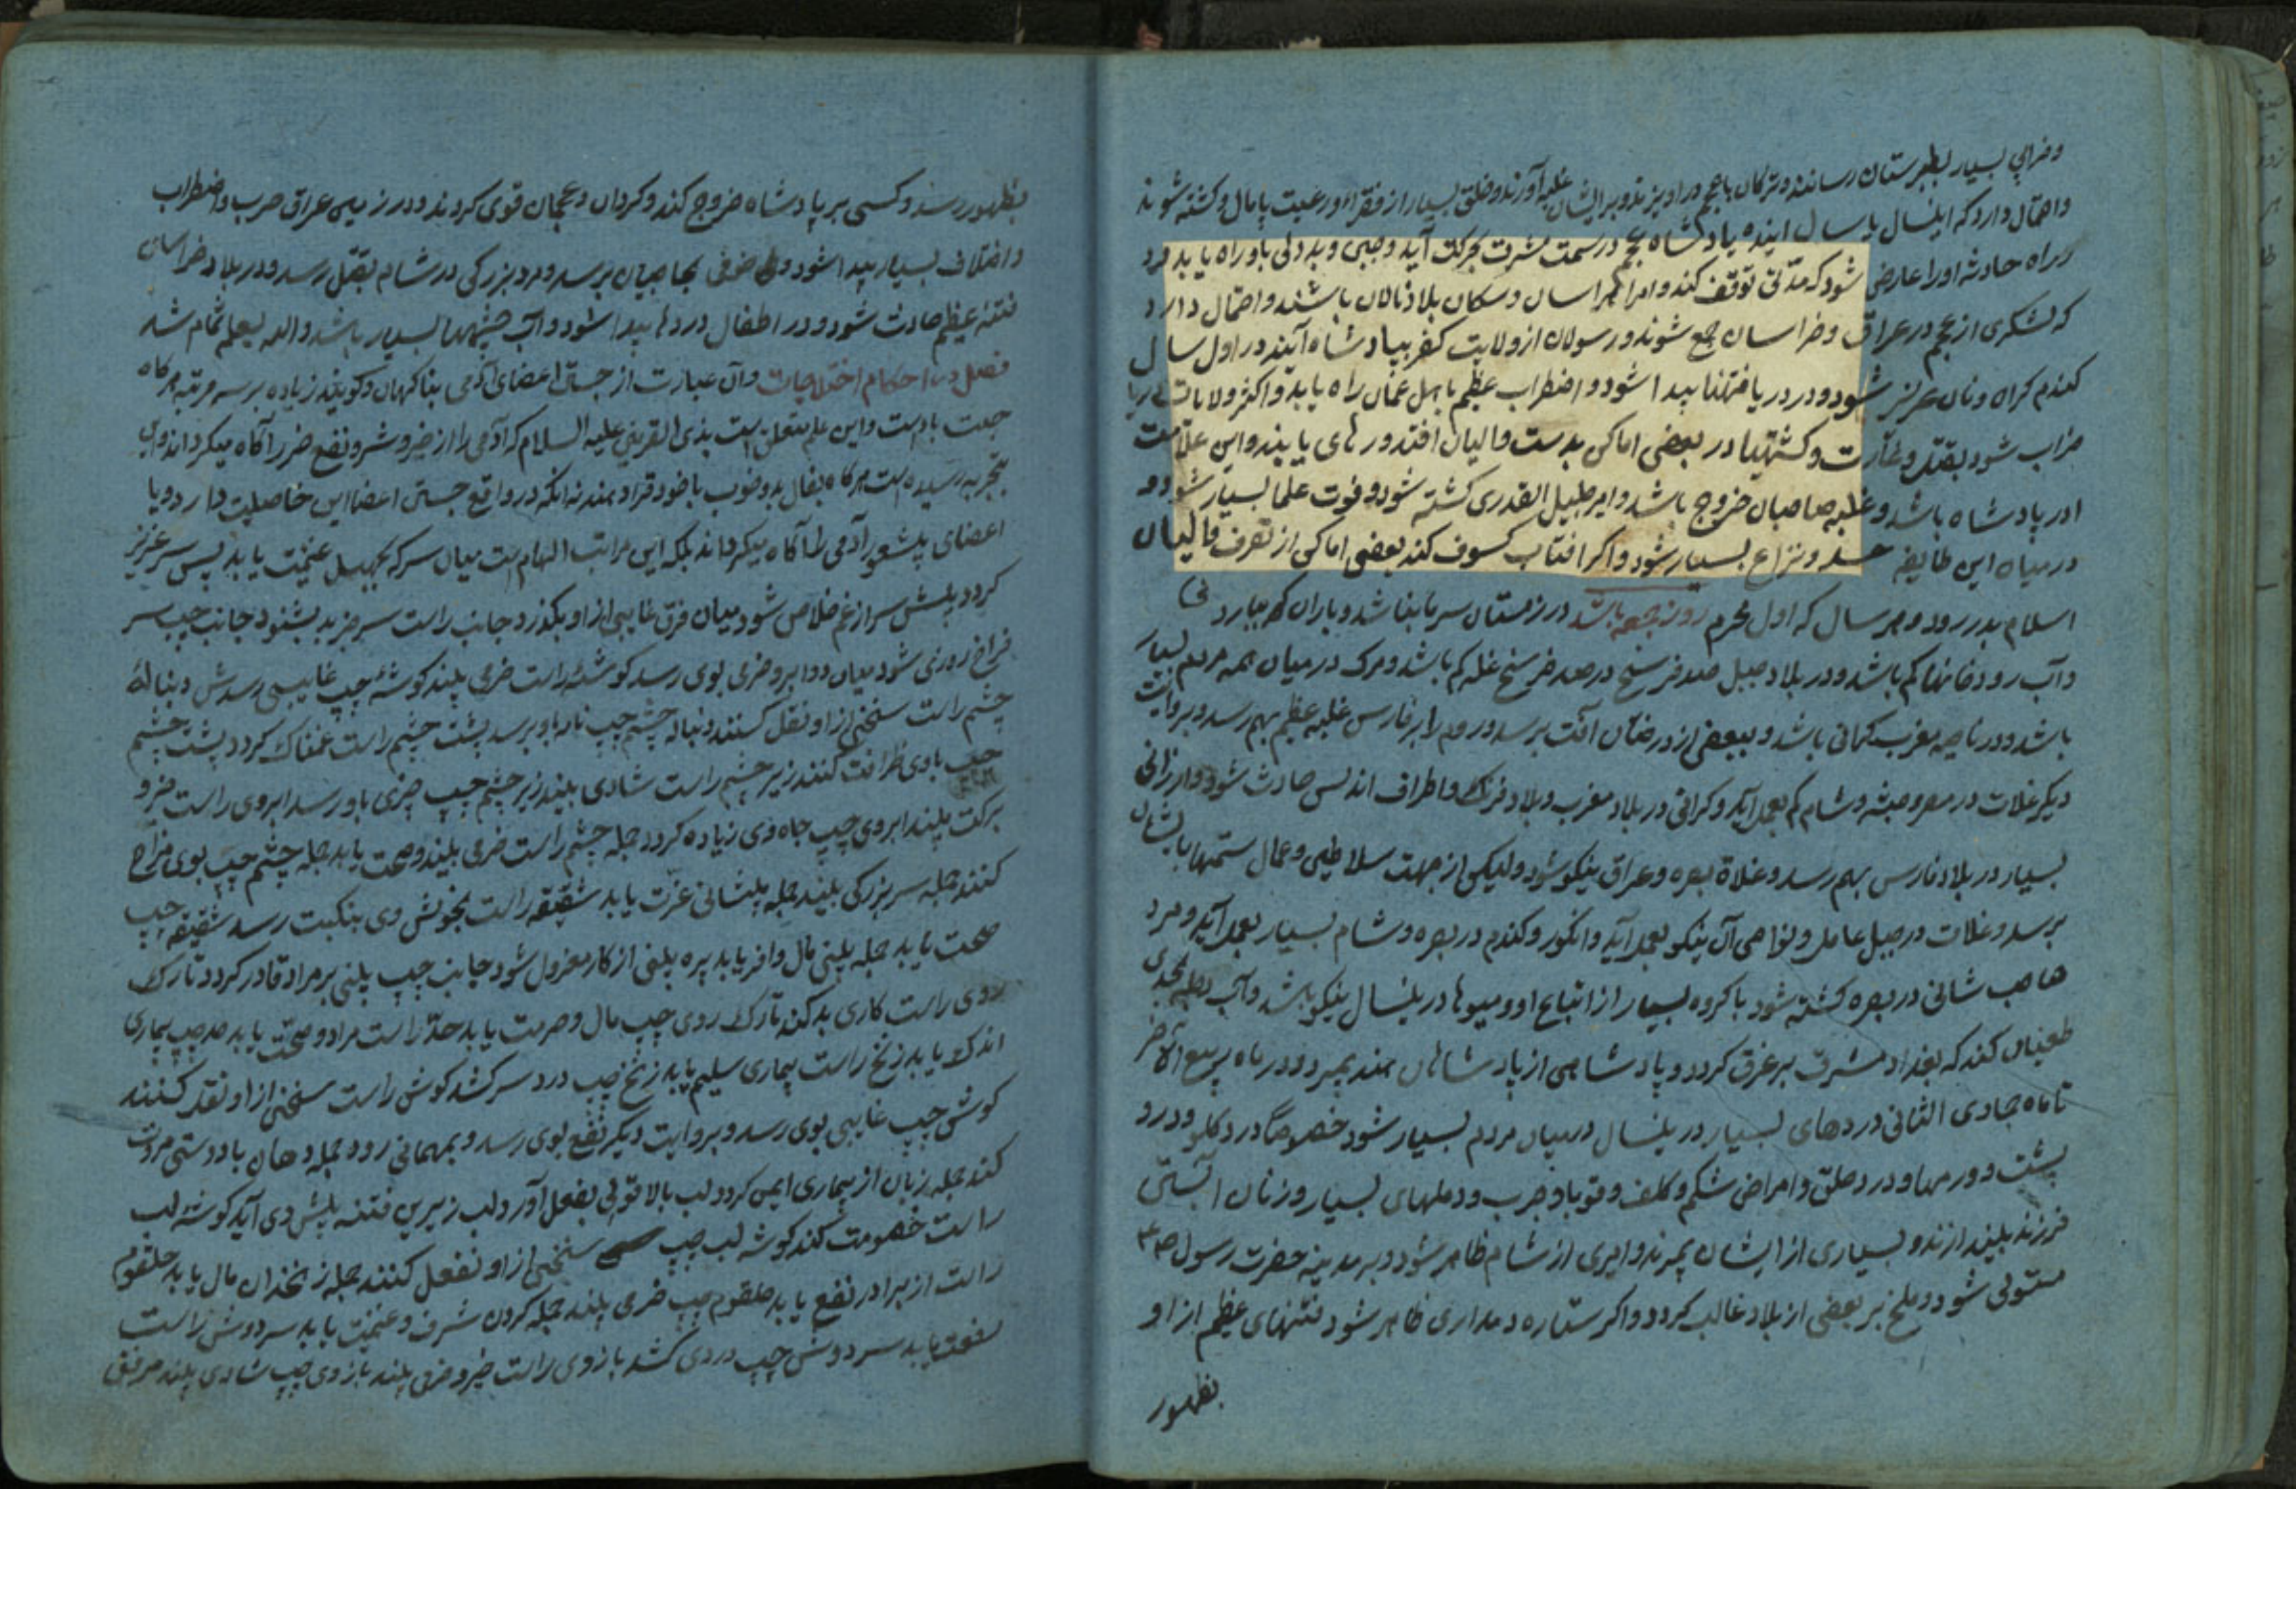 و خرابی بسیار بطبرستان رسانند و ترکان با عجم درآویزند و بر ایشان غلبه آورند و خلق بسیار از فقرا و رعیت پامال و کشته شوند
و احتمال دارد که اینسال یا سال آینده پادشاه عجم در سمت مشرق بحرکت آید و جبن و بد دلی باو راه یابد و در
راه حادثه او را عارض شود که مدتی توقف کند و امرا خراسان و سکان بلاد نالان باشند و احتمال دارد
که لشکری از عجم در عراق و خراسان جمع شوند و رسولان از ولایت کفر بپادشاه آیند در اول سال
گندم گران و نان عزیز شود و در دریا فتنها پیدا شود و اضطراب عظیم باهل عمان راه یابد و اکثر ولایات
خراب شود بقتل و غارت و کشتیها در بعضی اماکن بدست فالیان افتد و رهای یابند و این علامت
ادر پادشاه باشد و غلبه صاحبان خروج باشد و امیر جلیل القدری کشته شود و فوت علما بسیار شود و
در میان این طایفه حسد و نزاع بسیار شود و اگر افتاب کسوف کند بعضی اماکن از تصرف فالیان
اسلام بدر رود و هر سال که اول محرم روز جمعه باشد در زمستان سرما بناشد و باران کم ببارد
و آب رودخانها کم باشد و در بلاد جبل صد فرسخ در صد فرسخ غله کم باشد و مرگ در میان همه مردم بسیار
باشد و در ناحیه مغرب گرانی باشد و ببعضی از درختان آفت برسد و روم را بر فارس غلبه عظیم بهم رسد و بروایت
دیگر غلات در مصر و حبشه و شام کم بعمل آید و گرانی در بلاد مغرب و بلاد فرنگ و اطراف اندلس حادث شود و ارزانی
بسیار در بلاد فارس بهم رسد و غلاة بصره و عراق نیکو شود ولیکن از جهت سلاطین و عمال ستمها بایشان
برسد و غلات در جبل عامل و نواحی آن نیکو بعمل آید و انگور و گندم در بصره و شام بسیار بعمل آید و مرد
صاحب شانی در بصره کشته شود با گروه بسیار از اتباع او و میوها در ینسال نیکو باشد و آب دجله بحدی
طغیان کند که بغداد مشرف بر غرق گردد و پادشاهی از پادشاهان هند بمیرد و در ماه ربیع الآخر
تا ماه جمادی الثانی دردهای بسیار در ینسال در میان مردم بسیار شود خصوصا درد گلو و درد
پشت و ورمها و درد حلق و امراض شکم و کلف و قوبا و جرب و دملهای بسیار و زنان آبستن
فرزند بیندازند و بسیاری از ایشان بمیرند و امیری از شام ظاهر شود و به مدینه حضرت رسول ص
مستولی شود و ملخ بر بعضی از بلاد غالب گردد و اگر ستاره دمداری ظاهر شود فتنهای عظیم از او
بظهور
بظهور رسد و کسی بر پادشاه خروج کند و کردان و عجمان قوی گردند و در زمین عراق حرب و اضطراب
و اختلاف بسیار پیدا شود و خوفی بحاجیان برسد و مرد بزرگی در شام بقتل رسد و در بلاد خراسان
فتنه عظیم حادث شود و در اطفال دردها پیدا شود و آب چشمها بسیار باشد والله یعلم تمام شد
فصل در احکام اختلاجات و آن عبارت از جستن اعضای آدمی بناگهان و گویند زیاده بر سه مرتبه هرگاه
جهت باد است و این علم متعلق است بذی القرنین علیه السلام که آدمی را از خیر و شر و نفع ضرر آگاه میگرداند و این
بتجربه رسیده است هرگاه بفال بد و خوب با خود قرار دهند نه آنکه در واقع جستن اعضا این خاصیت دارد و یا
اعضای بیشعور آدمی را آگاه میگرداند بلکه این مراتب الهام است میان سر که بجهد غنیمت یابد پس سر عزیز
گردد پیش سر از غم خلاص شود میان فرق غایبی از او بگذرد جانب راست سر خبر بد بشنود جانب چپ سر
فراخ روزی شود میان دو ابرو خرمی بوی رسد گوشه راست خرمی بیند گوشه چپ غایبی رسدش دنباله
چشم راست سخنی از او نقل کنند دنباله چشم چپ ناله باو برسد پشت چشم راست غمناک گردد پشت چشم
چپ با وی ظرافت کنند زیر چشم راست شادی بیند زیر چشم چپ چیزی باو رسد ابروی راست خیر و
برکت بیند ابروی چپ جاه وی زیاده گردد جمله چشم راست خرمی بیند و صحت یابد جمله چشم چپ بوی مزاح
کنند جمله سر بزرگی بیند جمله پیشانی عزت یابد شقیقه راست بخویش وی نکبت رسد شقیقه چپ
صحت یابد جمله بینی مال وافر یابد پره بینی از کار معزول شود جانب چپ بینی بر مراد قادر گردد تارک
روی راست کاری بد کند تارک روی چپ مال و حرمت یابد خد راست مراد و صحت یابد خد چپ بیماری
اندک یابد زنخ راست بیماری سلیم یابد زنخ چپ درد سر کشد گوش راست سخنی از او نقل کنند
گوش چپ غایبی بوی رسد و بروایت دیگر نفع بوی رسد و بمهمانی رود جمله دهان با دوستی مروت
کند جمله زبان از بیماری ایمن گردد لب بالا قولی بفعل آورد لب زیرین فتنه پیش وی آید گوشه لب
راست خصومت کند گوشه لب چپ سخنی از او نقل کنند جمله زنخدان مال یابد حلقوم
راست از برادر نفع یابد حلقوم چپ خرمی بیند جمله گردن شرف و غنیمت یابد سر دوش راست
منفعت یابد سر دوش چپ دردی کشد بازوی راست خیر و خرمی بیند بازوی چپ شادی بیند مرفق